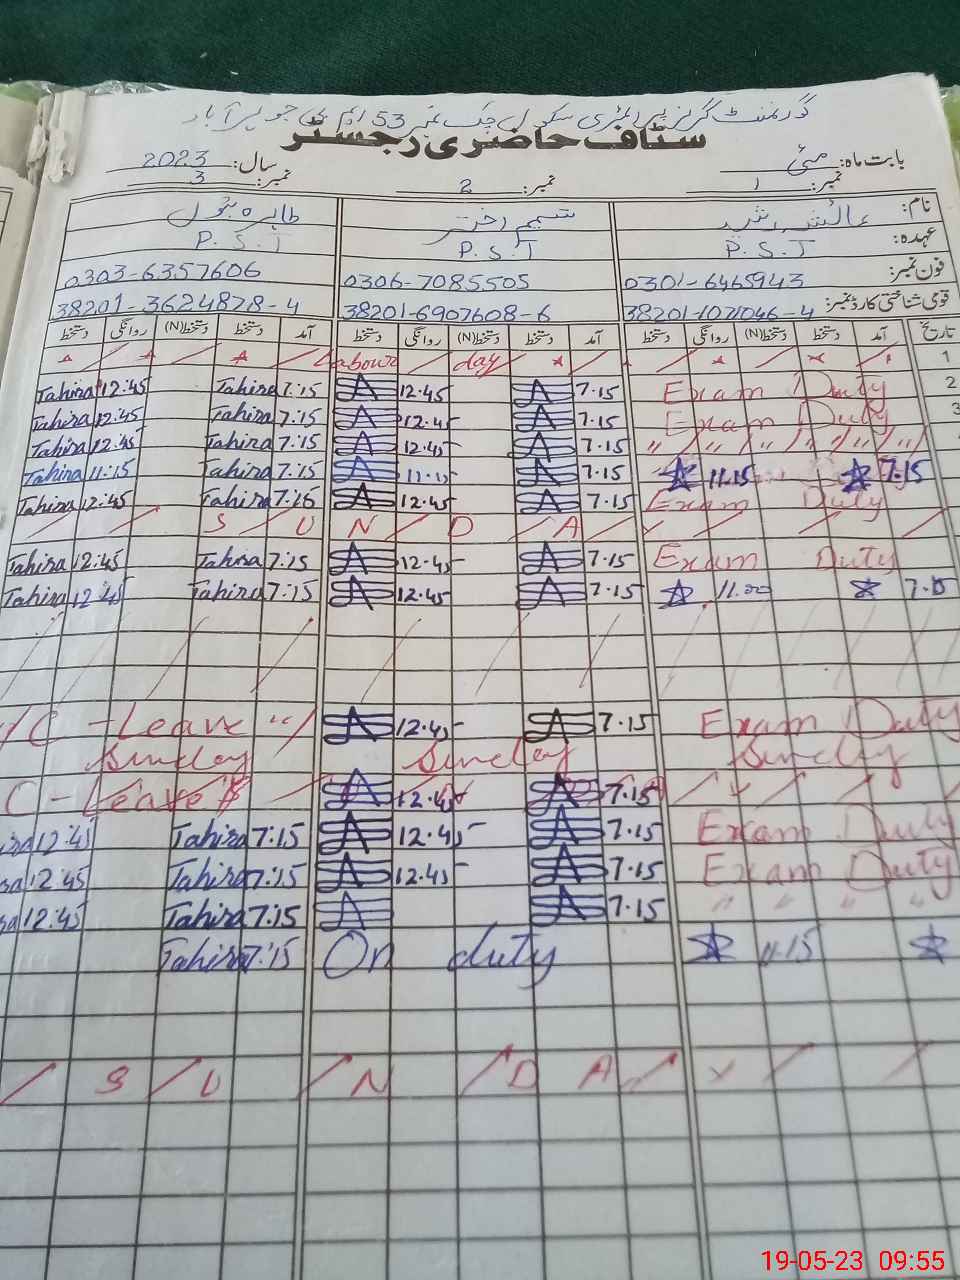 گورنمنٹ گرلز پرائمری سکول چک نمبر 53 ایم بی جوہرآباد
سٹاف حاضری رجسٹر
بابت ماہ: مئی سال: 2023
نمبر: 1 نمبر: 2 نمبر: 3
نام: عائشہ رشید نسیم اختر طاہرہ بتول
عہدہ: P.S.T P.S.T P.S.T
فون نمبر: 0301-6465943 0306-7085505 0303-6357606
قومی شناختی کارڈ نمبر: 38201-1071046-4 38201-6907608-6 38201-3624878-4
تاریخ آمد دستخط دستخط(N) روانگی دستخط آمد دستخط دستخط(N) روانگی دستخط آمد دستخط دستخط(N) روانگی دستخط
1 Labour day
Tahira 12:45 Tahira 7:15 A 12.45 A 7.15 Exam Duty 2
Tahira 12:45 Tahira 7:15 A 12.45 A 7.15 Exam Duty 3
Tahira 12:45 Tahira 7:15 A 12.45 A 7.15 " " " " " "
Tahira 11:15 Tahira 7:15 A 11.15 A 7.15 11.15 7.15
Tahira 12:45 Tahira 7:15 A 12.45 A 7.15 Exam Duty
S U N D A Y
Tahira 12:45 Tahira 7:15 A 12.45 A 7.15 Exam Duty
Tahira 12:45 Tahira 7:15 A 12.45 A 7.15 11.00 7.15
C-Leave A 12.45 A 7.15 Exam Duty
Sunday Sunday Sunday
C-Leave A 12.45 A 7.15
12:45 Tahira 7:15 A 12.45 A 7.15 Exam Duty
12:45 Tahira 7:15 A 12.45 A 7.15 Exam Duty
12:45 Tahira 7:15 A A 7.15 " " " "
Tahira 7:15 On duty 11.15
S U N D A Y
19-05-23 09:55